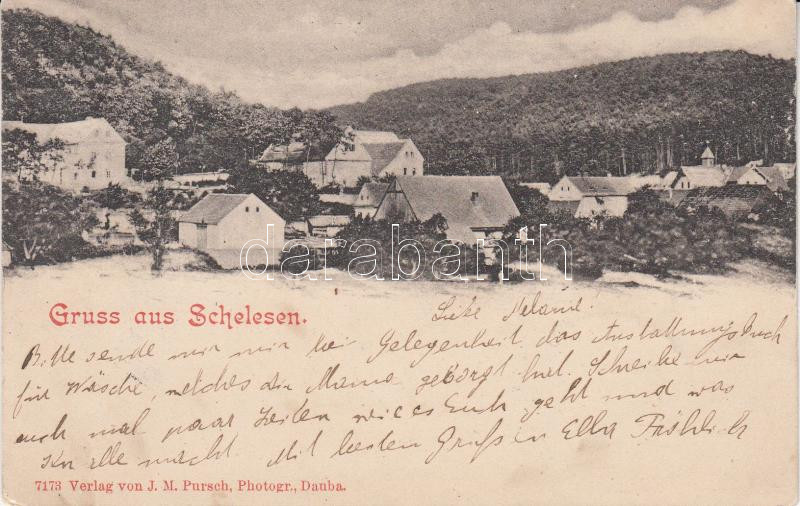 darabanth
Gruss aus Schelesen.
Liebe Melanie!
Bitte sende mir nur bei Gelegenheit das Ausstattungsbuch
für Wäsche, welches dir Mama geborgt hat. Schreibe mir
auch mal paar Zeilen wie es Euch geht und was
alle macht. Mit besten Grüßen Ella Fröhlich
7173 Verlag von J. M. Pursch, Photogr., Dauba.